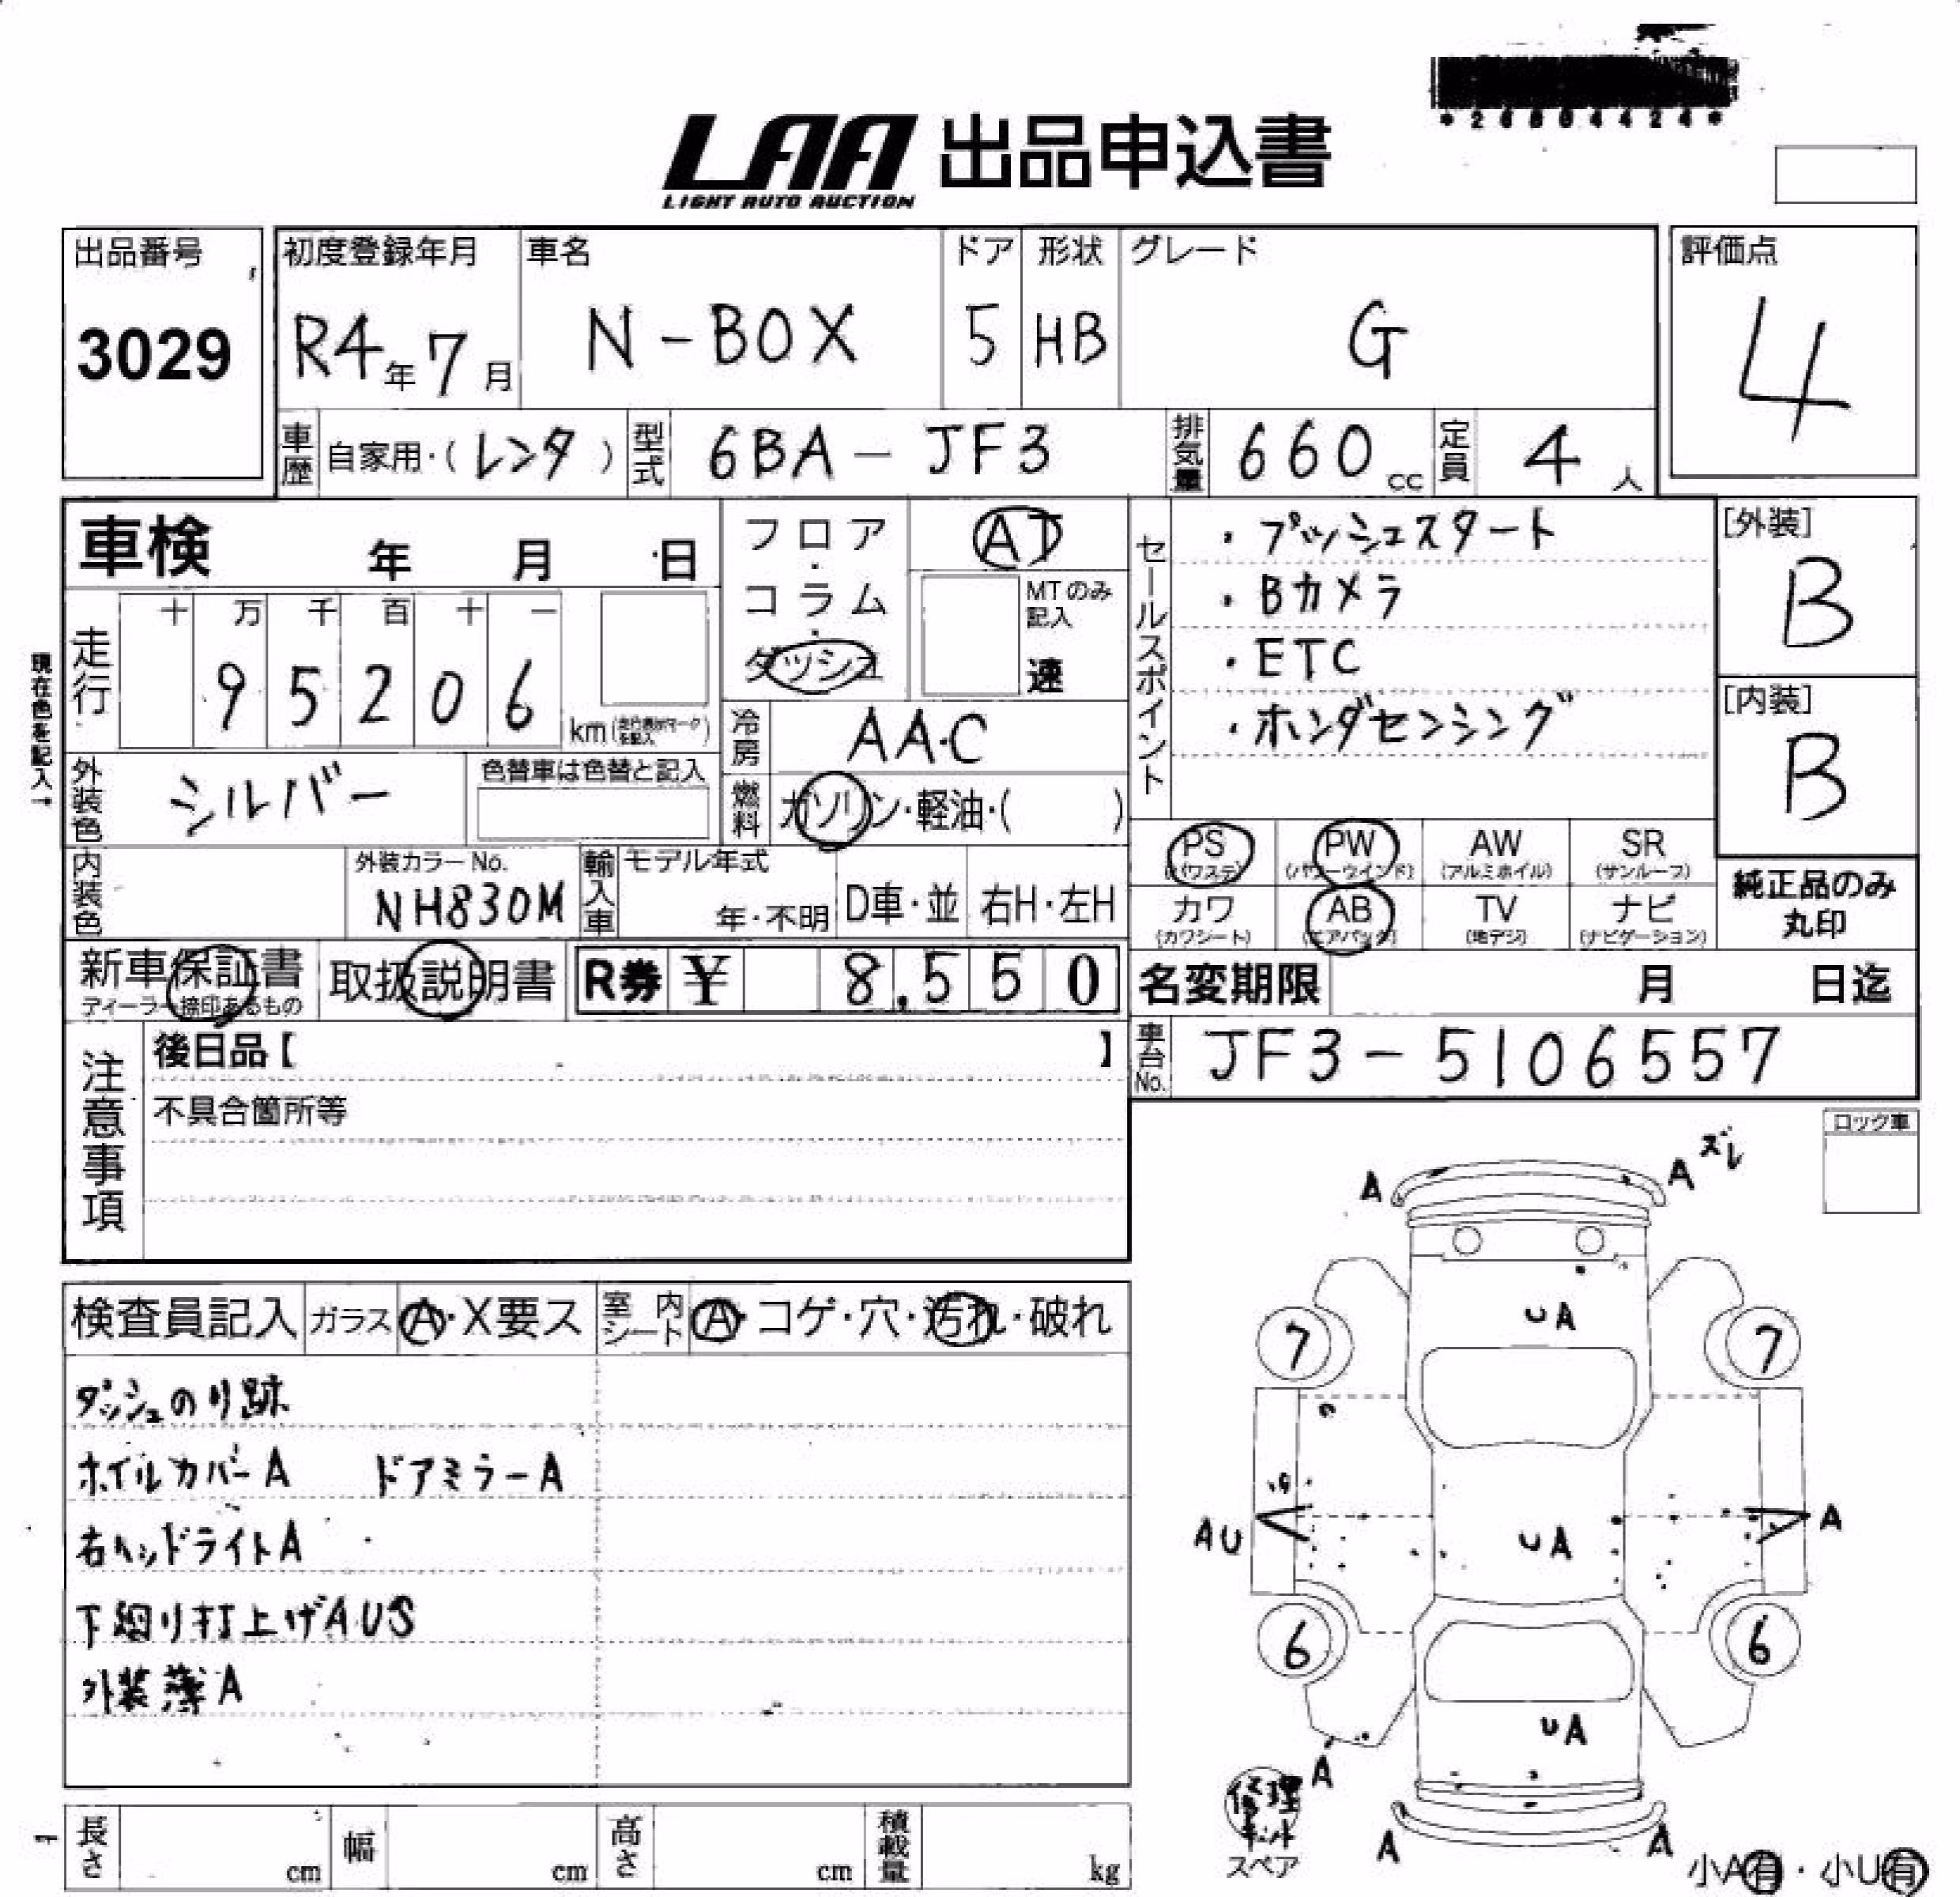 *26004424*
LAA 出品申込書
LIGHT AUTO AUCTION
出品番号
3029
初度登録年月
R4年7月
車名
N-BOX
ドア
5
形状
HB
グレード
G
評価点
4
車歴
自家用・(レンタ)
型式
6BA-JF3
排気量
660cc
定員
4人
車検 年 月 日
フロア・コラム・ダッシュ
AT
MTのみ記入
速
セールスポイント
・プッシュスタート
・Bカメラ
・ETC
・ホンダセンシング
[外装]
B
[内装]
B
現在色を記入→
走行
十 万 千 百 十 一
9 5 2 0 6
km
冷房
AAC
外装色
シルバー
色替車は色替と記入
燃料
ガソリン・軽油・( )
PS
(パワステ)
PW
(パワーウインド)
AW
(アルミホイル)
SR
(サンルーフ)
カワ
(カワシート)
AB
(エアバッグ)
TV
(地デジ)
ナビ
(ナビゲーション)
純正品のみ
丸印
内装色
外装カラーNo.
NH830M
輸入車
モデル年式
年・不明
D車・並
右H・左H
新車保証書
ディーラー捺印あるもの
取扱説明書
R券 ¥ 8,550
名変期限 月 日迄
車台No.
JF3-5106557
注意事項
後日品【 】
不具合箇所等
ロック車
検査員記入
ガラス
A・X要ス
室内シート
A・コゲ・穴・汚れ・破れ
ダッシュのり跡
ホイルカバーA ドアミラーA
右ヘッドライトA
下廻り打上げAUS
外装薄A
A
A ズレ
UA
7
7
AU
UA
A
6
6
UA
A
修理キット
スペア
A
A
小A有・小U有
長さ cm
幅 cm
高さ cm
積載量 kg